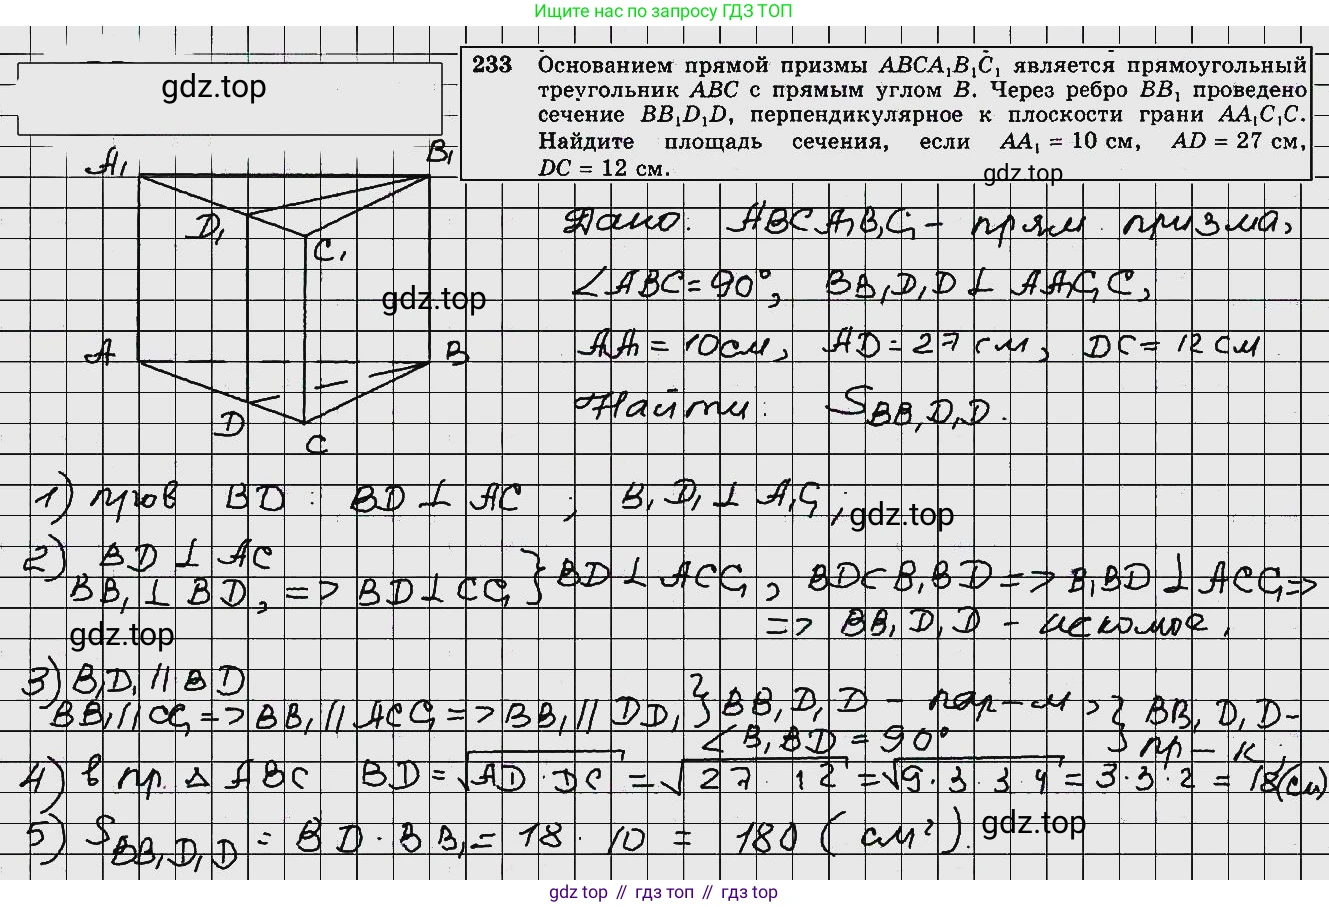 Ищите нас по запросу ГДЗ ТОП
gdz.top
233 Основанием прямой призмы ABCA₁B₁C₁ является прямоугольный
треугольник ABC с прямым углом B. Через ребро BB₁ проведено
сечение BB₁D₁D, перпендикулярное к плоскости грани AA₁C₁C.
Найдите площадь сечения, если AA₁ = 10 см, AD = 27 см,
DC = 12 см.
gdz.top
A₁
B₁
D₁
C₁
A
B
D
C
gdz.top
Дано: ABCA₁B₁C₁ - прям. призма,
∠ABC = 90°, BB₁D₁D ⊥ AA₁C₁C,
AA₁ = 10 см, AD = 27 см, DC = 12 см
Найти: S BB₁D₁D.
1) пров BD : BD ⊥ AC ; B₁D₁ ⊥ A₁C₁;
gdz.top
2) BD ⊥ AC
BB₁ ⊥ BD, => BD ⊥ CC₁ } BD ⊥ ACC₁, BD ⊂ B₁BD => B₁BD ⊥ ACC₁ =>
=> BB₁D₁D - искомое.
gdz.top
3) B₁D₁ // BD
BB₁ // CC₁ => BB₁ // ACC₁ => BB₁ // DD₁ } BB₁D₁D - пар-м, } BB₁D₁D -
∠B₁BD = 90° } пр-к;
4) в пр. △ ABC BD = √AD · DC = √27 · 12 = √9 · 3 · 3 · 4 = 3 · 3 · 2 = 18 (см)
5) S BB₁D₁D = BD · BB₁ = 18 · 10 = 180 (см²).
gdz.top
gdz top // гдз топ // гдз top